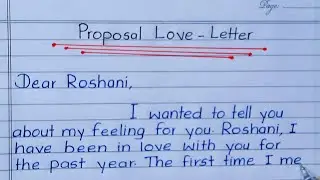 Page:
Proposal Love-Letter
Dear Roshani,
I wanted to tell you
about my feeling for you. Roshani, I
have been in love with you for
the past year. The first time I me